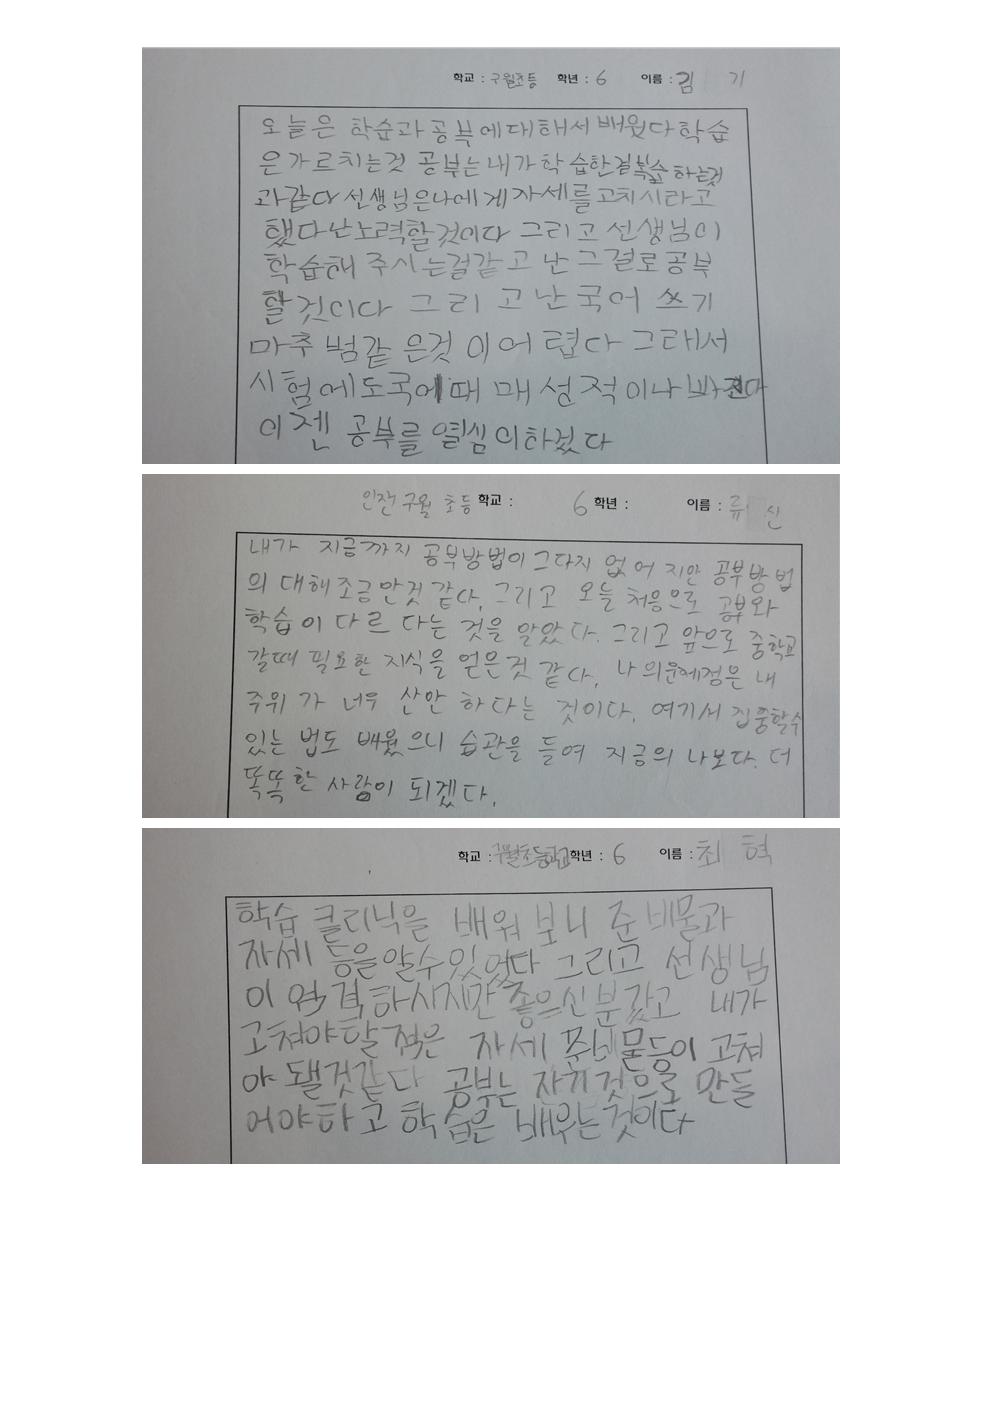 학교 : 구월초등 학년 : 6 이름 : 김 기
오늘은 학습과 공부에대해서 배웠다 학습
은가르치는것 공부는 내가 학습한걸 복습 하는것
과같다 선생님은나에게 자세를 고치시라고
했다난노력할것이다 그리고 선생님이
학습해 주시는걸같고 난 그걸로공부
할것이다 그리고난국어 쓰기
마추범같은것이어렵다 그래서
시험에도국에때매성적이나빠진다
이젠 공부를 열심이하겠다
인천구월초등 학교 : 6 학년 : 이름 : 류 신
내가 지금까지 공부방법이그다지 없어지만 공부방법
의 대해조금안것같다. 그리고 오늘 처음으로 공부와
학습이 다르다는 것을 알았다. 그리고 앞으로 중학교
갈때 필요한 지식을 얻은것 같다. 나의문제점은 내
주위가 너무 산만하다는 것이다. 여기서 집중할수
있는 법도 배웠으니 습관을 들여 지금의 나보다. 더
똑똑한 사람이 되겠다.
학교 : 구월초등학교 학년 : 6 이름 : 최 혁
학습 클리닉을 배워보니 준비물과
자세 등을알수있었다 그리고 선생님
이 엄격하시지만 좋으신분같고 내가
고쳐야할점은 자세 준비물등이 고쳐
야 될것같다 공부는 자기것으로 만들
어야하고 학습은 배우는것이다